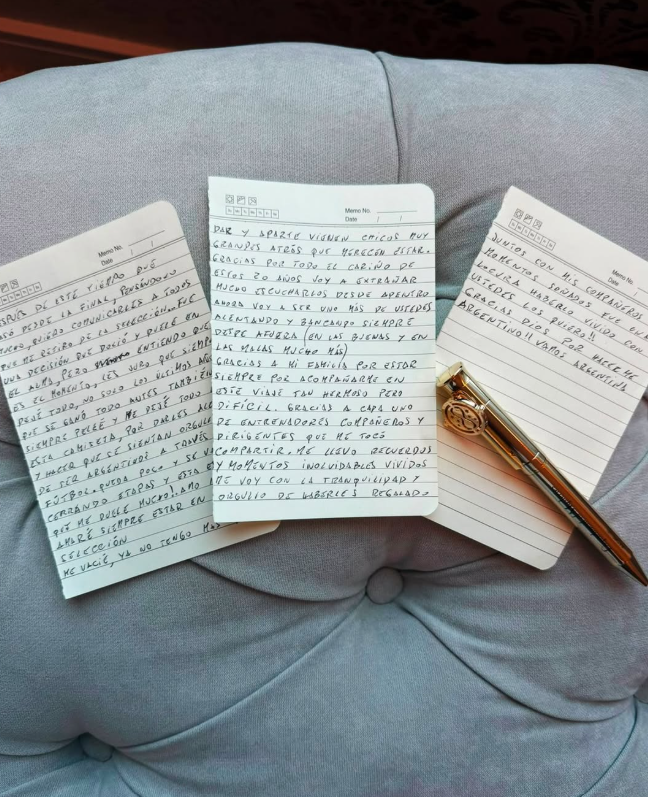 Memo No.
Date / /
DESPUÉS DE ESTE TIEMPO QUE
PASÓ DESDE LA FINAL, PENSÁNDOLO
MUCHO, QUIERO COMUNICARLES A TODOS
QUE ME RETIRO DE LA SELECCIÓN. FUE
UNA DECISIÓN QUE DOLIÓ Y DUELE EN
EL ALMA, PERO ENTIENDO QUE
ES EL MOMENTO, LES JURO QUE SIEMPRE
DEJÉ TODO, NO SOLO LOS ÚLTIMOS AÑOS
QUE SE GANÓ TODO ANTES TAMBIÉN
SIEMPRE PELEÉ Y ME DEJÉ TODO
ESTA CAMISETA, POR DARLES
Y HACER QUE SE SIENTAN
DE SER ARGENTINOS A TRAVÉS
FÚTBOL. QUEDA POCO Y SE
CERRANDO ETAPAS Y ESTA
QUE ME DUELE MUCHO! AMO
AMARÉ SIEMPRE ESTAR EN
SELECCIÓN
ME VACIÉ, YA NO TENGO
Memo No.
Date / /
DAR Y APARTE VIENEN CHICOS MUY
GRANDES ATRÁS QUE MERECEN ESTAR.
GRACIAS POR TODO EL CARIÑO DE
ESTOS 20 AÑOS VOY A EXTRAÑAR
MUCHO ESCUCHARLOS DESDE ADENTRO
AHORA VOY A SER UNO MÁS DE USTEDES
ALENTANDO Y BANCANDO SIEMPRE
DESDE AFUERA (EN LAS BUENAS Y EN
LAS MALAS MUCHO MÁS)
GRACIAS A MI FAMILIA POR ESTAR
SIEMPRE POR ACOMPAÑARME EN
ESTE VIAJE TAN HERMOSO PERO
DIFÍCIL. GRACIAS A CADA UNO
DE ENTRENADORES COMPAÑEROS Y
DIRIGENTES QUE ME TOCÓ
COMPARTIR. ME LLEVO RECUERDOS
Y MOMENTOS INOLVIDABLES VIVIDOS
ME VOY CON LA TRANQUILIDAD Y
ORGULLO DE HABERLES REGALADO
Memo No.
Date
JUNTOS CON MIS COMPAÑEROS
MOMENTOS SOÑADOS FUE
LOCURA HABERLO VIVIDO CON
USTEDES LOS QUIERO!!
GRACIAS DIOS POR HACERME
ARGENTINO!! VAMOS ARGENTINA